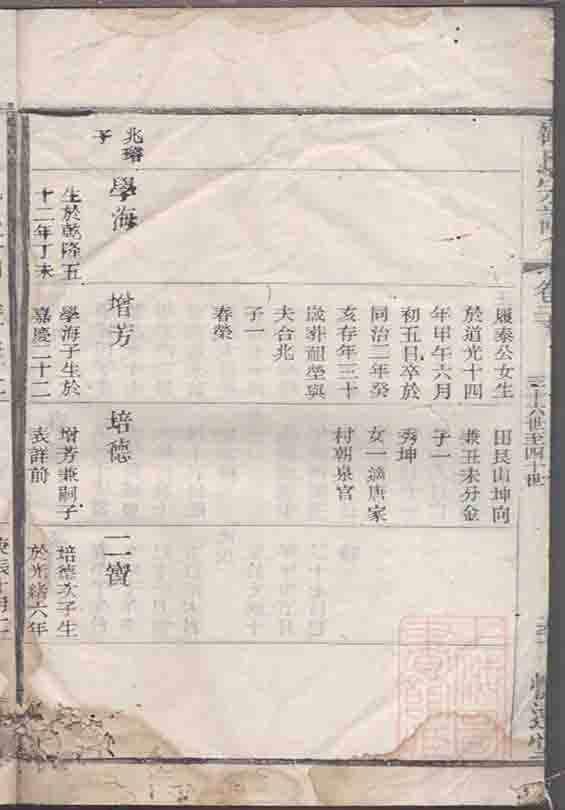 氏宗譜
卷三
三十六世至四十世
兆瑢
子
學海
生於乾隆五
十二年丁未
履泰公女生
於道光十四
年甲午六月
初五日卒於
同治二年癸
亥存年三十
歲葬祖塋與
夫合北
子一
春榮
增芳
學海子生於
嘉慶二十二
田艮山坤向
兼丑未分金
子一
秀坤
女一適唐家
村朝泉官
培德
增芳兼嗣子
表詳前
二寶
培德次子生
於光緒六年
庚辰十月二